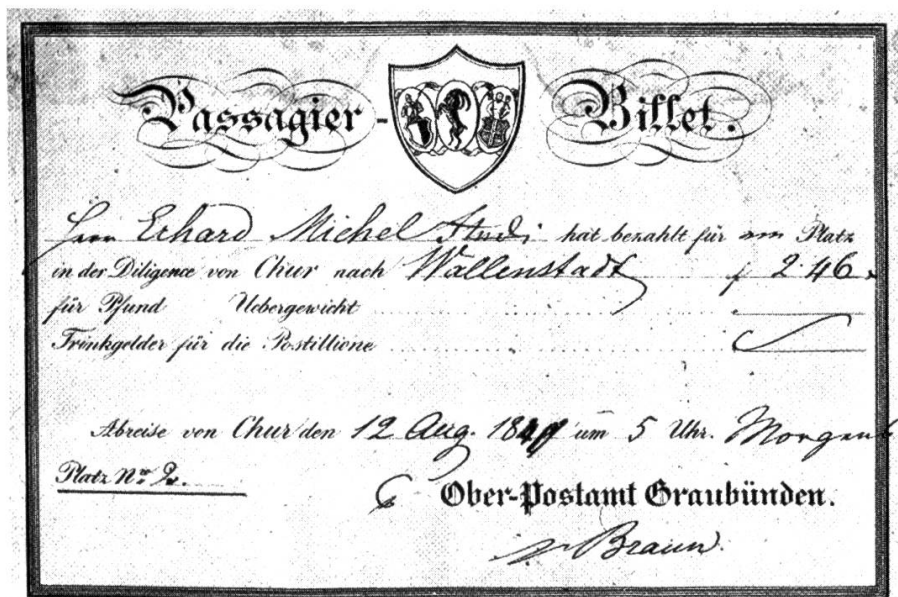 Passagier- Billet.
Herr Erhard Michel hat bezahlt für Platz
in der Diligence von Chur nach Wallenstadt f 2.46
für Pfund Uebergewicht
Trinkgelder für die Postillione
Abreise von Chur den 12 Aug. um 5 Uhr. Morgens
Platz No. 2.
Ober-Postamt Graubünden.
Braun.